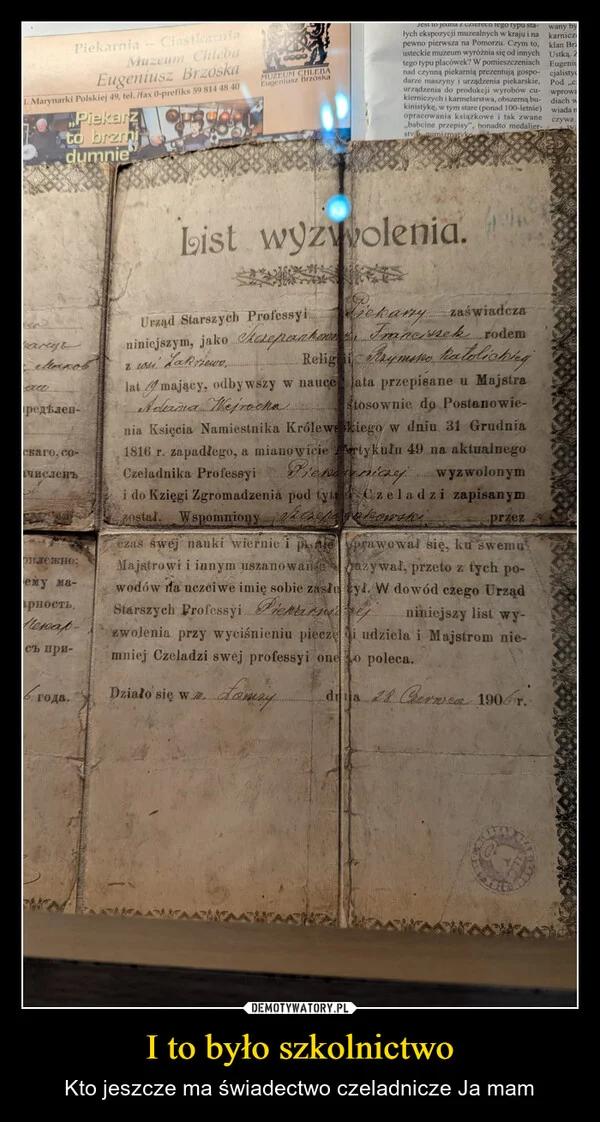 Piekarnia – Ciastkarnia
Muzeum Chleba
Eugeniusz Brzóska
l. Marynarki Polskiej 49, tel. /fax 0-prefiks 59 814 48 40
MUZEUM CHLEBA
Eugeniusz Brzóska
„Piekarz
to brzmi
dumnie”
Jest to jedna z czterech tego typu sta-
łych ekspozycji muzealnych w kraju i na
pewno pierwsza na Pomorzu. Czym to,
usteckie muzeum wyróżnia się od innych
tego typu placówek? W pomieszczeniach
nad czynną piekarnią prezentują gospo-
darze maszyny i urządzenia piekarskie,
urządzenia do produkcji wyrobów cu-
kierniczych i karmelarstwa, obszerną bu-
kinistykę, w tym stare (ponad 100-letnie)
opracowania książkowe i tak zwane
„babcine przepisy”, ponadto medalier-
wany by
karnicz
klan Brz
Ustką. Z
Eugeni
cjalisty
Pod „c
wprowa
diach w
wiada n
czywa
List wyzwolenia.
Urząd Starszych Professyi Piekarzy zaświadcza
niniejszym, jako Szczepankowski Franciszek rodem
z wsi Zakrzewo, Religii Rzymsko Katolickiej
lat 19 mający, odbywszy w nauce lata przepisane u Majstra
Adama Wejrocha stosownie do Postanowie-
nia Księcia Namiestnika Królewskiego w dniu 31 Grudnia
1816 r. zapadłego, a mianowicie Artykułu 49 na aktualnego
Czeladnika Professyi Piekarniczej wyzwolonym
i do Księgi Zgromadzenia pod tyt. Czeladzi zapisanym
został. Wspomniony Szczepankowski przez
czas swej nauki wiernie i pilnie sprawował się, ku swemu
Majstrowi i innym uszanowanie okazywał, przeto z tych po-
wodów na uczciwe imię sobie zasłużył. W dowód czego Urząd
Starszych Professyi Piekarniczej niniejszy list wy-
zwolenia przy wyciśnieniu pieczęci udziela i Majstrom nie-
mniej Czeladzi swej professyi onego poleca.
Działo się w m. Łomży dnia 28 Czerwca 1906 r.
предѣлен-
скаго, со-
численъ
ему ма-
рность.
съ при-
года.
DEMOTYWATORY.PL
I to było szkolnictwo
Kto jeszcze ma świadectwo czeladnicze Ja mam